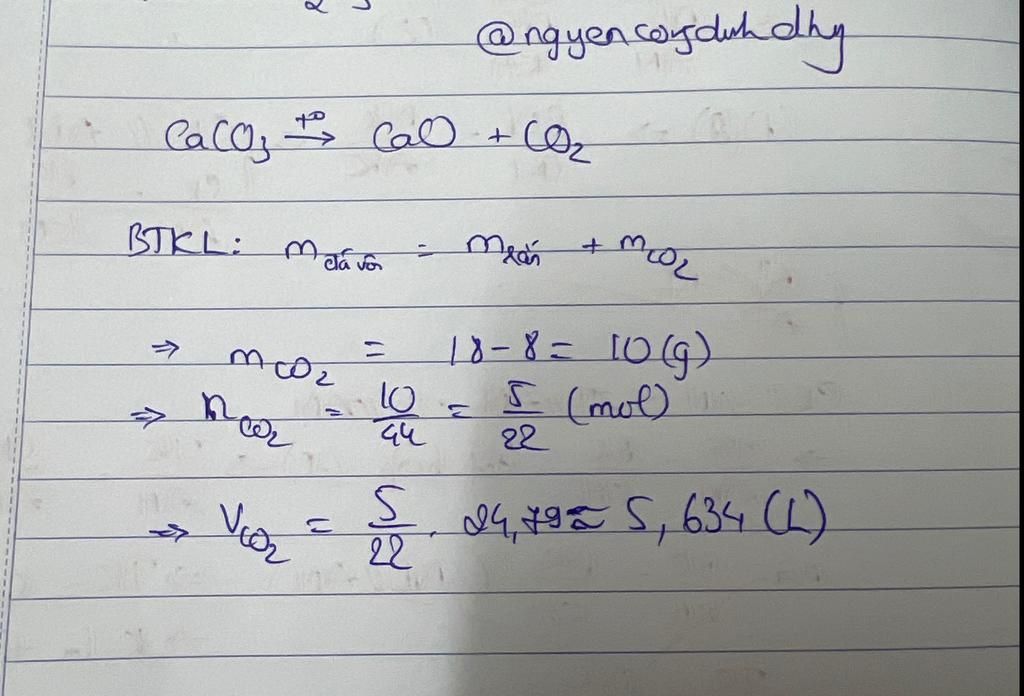 @ngyencongduhdhy
CaCO₃ →(t°) CaO + CO₂
BTKL: m đá vôi = m rắn + m CO₂
⇒ m CO₂ = 18 - 8 = 10 (g)
⇒ n CO₂ = 10/44 = 5/22 (mol)
⇒ V CO₂ = 5/22 . 24,79 ≈ 5,634 (L)